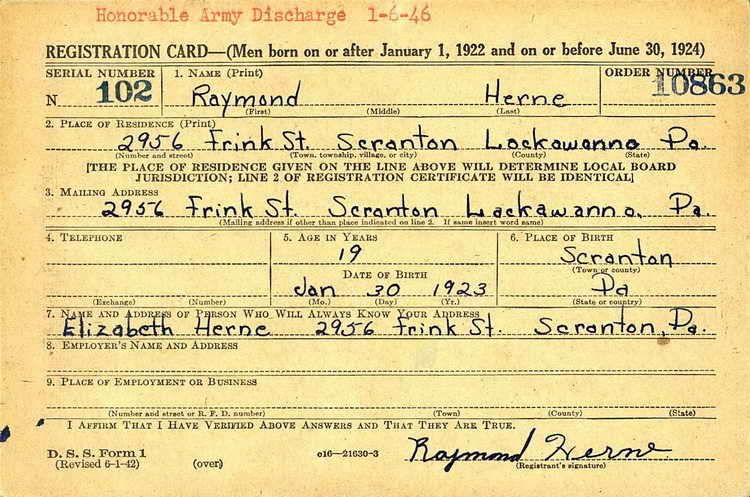 Honorable Army Discharge 1-6-46
REGISTRATION CARD—(Men born on or after January 1, 1922 and on or before June 30, 1924)
SERIAL NUMBER 1. NAME (Print) ORDER NUMBER
N 102 Raymond Herne 10863
(First) (Middle) (Last)
2. PLACE OF RESIDENCE (Print)
2956 Frink St. Scranton Lackawanna Pa.
(Number and street) (Town, township, village, or city) (County) (State)
[THE PLACE OF RESIDENCE GIVEN ON THE LINE ABOVE WILL DETERMINE LOCAL BOARD
JURISDICTION; LINE 2 OF REGISTRATION CERTIFICATE WILL BE IDENTICAL]
3. MAILING ADDRESS
2956 Frink St. Scranton Lackawanna. Pa.
(Mailing address if other than place indicated on line 2. If same insert word same)
4. TELEPHONE 5. AGE IN YEARS 6. PLACE OF BIRTH
19 Scranton
(Town or county)
DATE OF BIRTH
Jan 30 1923 Pa
(Exchange) (Number) (Mo.) (Day) (Yr.) (State or country)
7. NAME AND ADDRESS OF PERSON WHO WILL ALWAYS KNOW YOUR ADDRESS
Elizabeth Herne 2956 Frink St. Scranton, Pa.
8. EMPLOYER'S NAME AND ADDRESS
9. PLACE OF EMPLOYMENT OR BUSINESS
(Number and street or R. F. D. number) (Town) (County) (State)
I AFFIRM THAT I HAVE VERIFIED ABOVE ANSWERS AND THAT THEY ARE TRUE.
D. S. S. Form 1 c16—21630-3 Raymond Herne
(Revised 6-1-42) (over) (Registrant's signature)